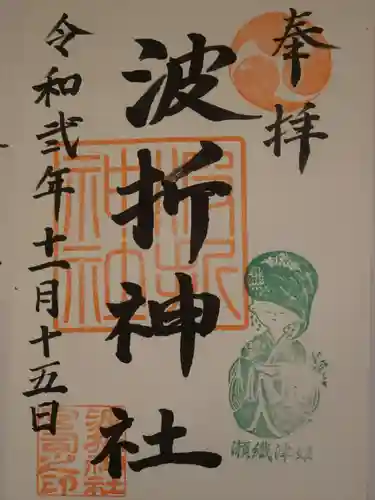 奉拝
波折神社
令和弐年十一月十五日
波折神社
瀬織津姫